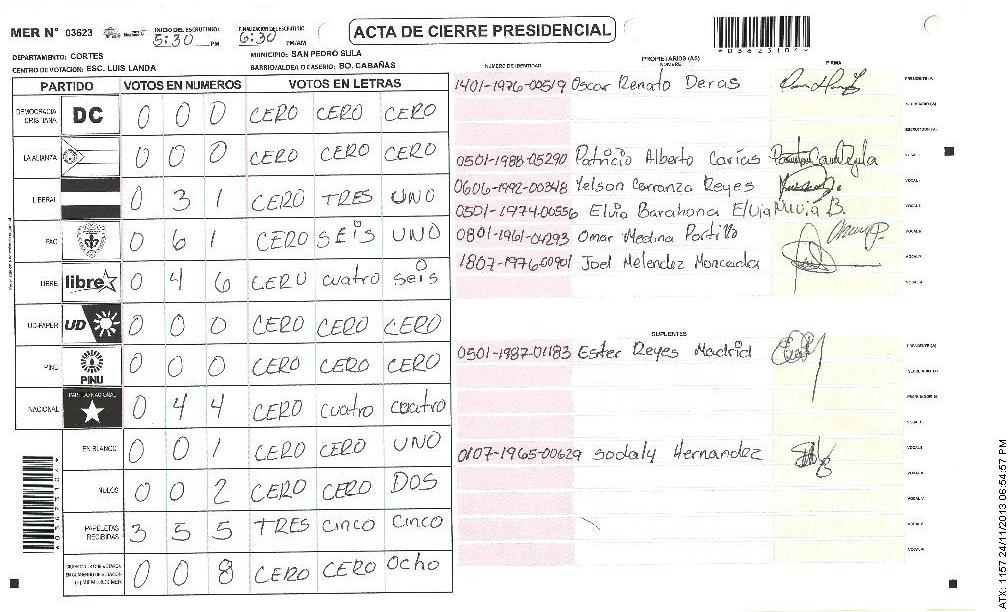 MER N° 03623
INICIO DEL ESCRUTINIO: 5:30 PM
FINALIZACION DEL ESCRUTINIO 6:30 PM/AM
ACTA DE CIERRE PRESIDENCIAL
DEPARTAMENTO: CORTES
MUNICIPIO: SAN PEDRO SULA
CENTRO DE VOTACION: ESC. LUIS LANDA
BARRIO/ALDEA O CASERIO: BO. CABAÑAS
PARTIDO VOTOS EN NUMEROS VOTOS EN LETRAS
DEMOCRACIA CRISTIANA DC 0 0 0 CERO CERO CERO
LA ALIANZA 0 0 0 CERO CERO CERO
LIBERAL 0 3 1 CERO TRES UNO
PAC 0 6 1 CERO SEIS UNO
LIBRE libre 0 4 6 CERO cuatro seis
UD-FAPER UD 0 0 0 CERO CERO CERO
PINU PINU 0 0 0 CERO CERO CERO
NACIONAL PARTIDO NACIONAL 0 4 4 CERO cuatro cuatro
EN BLANCO 0 0 1 CERO CERO UNO
NULOS 0 0 2 CERO CERO DOS
PAPELETAS RECIBIDAS 3 5 5 TRES cinco cinco
0 0 8 CERO CERO Ocho
PROPIETARIOS (AS)
NUMERO DE IDENTIDAD NOMBRE FIRMA
1401-1976-00519 Oscar Renato Deras PRESIDENTE (A)
SECRETARIO (A)
ESCRUTADOR (A)
0501-1988-05290 Patricio Alberto Carías VOCAL I
0606-1992-00348 Yelson Carranza Reyes
0501-1974-00556 Elvia Barahona Elvia B.
0801-1961-04293 Omar Medina Portillo
1807-1976-00901 Joel Melendez Moncada
SUPLENTES
0501-1987-01183 Ester Reyes Madrid PRESIDENTE (A)
SECRETARIO (A)
0107-1965-00629 Sodaly Hernandez
ATX: 1157 24/11/2013 06:54:57 PM